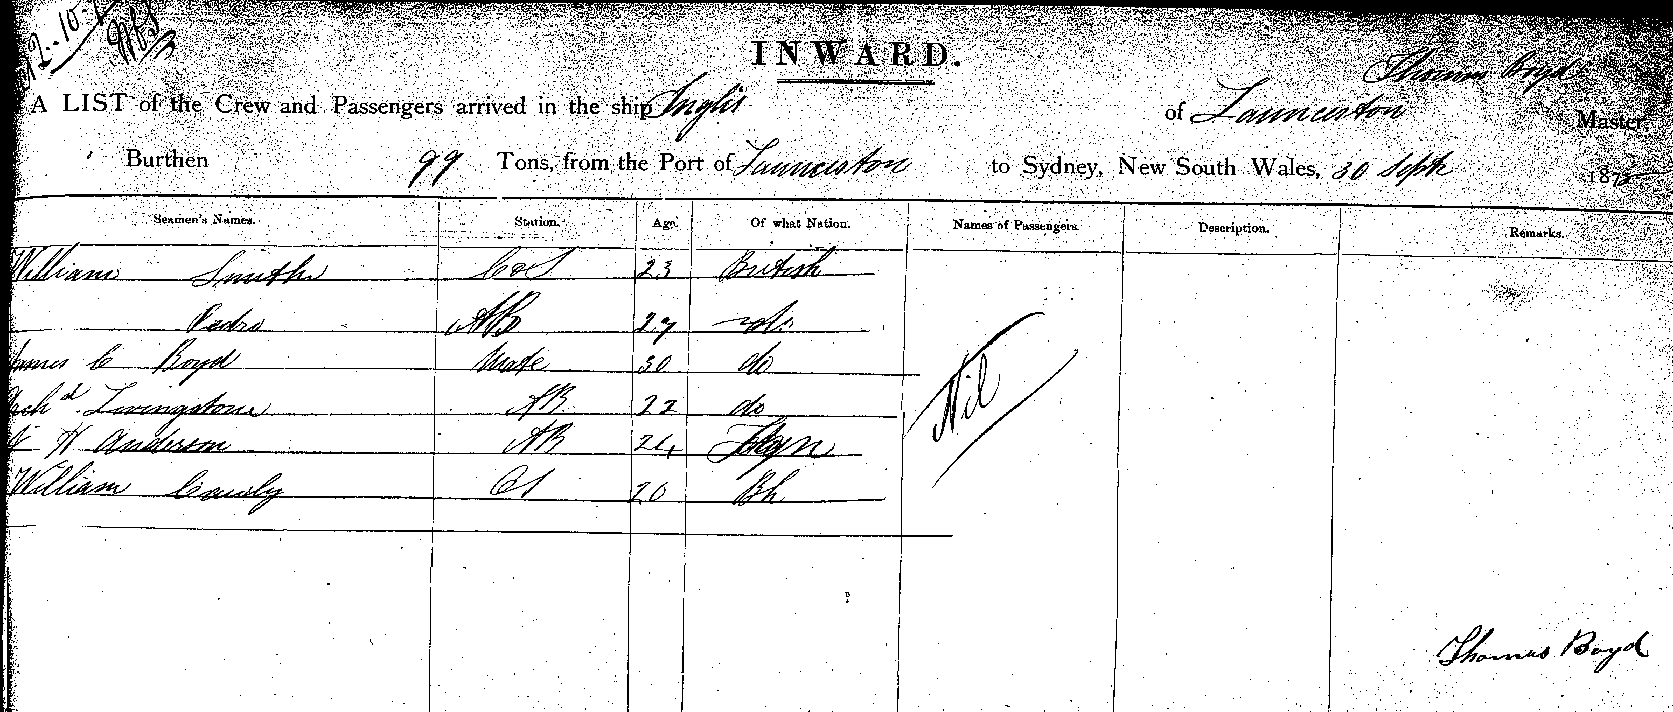 2.10.
INWARD.
Thomas Boyd
A LIST of the Crew and Passengers arrived in the ship Inglis of Launceston Master
Burthen 99 Tons, from the Port of Launceston to Sydney, New South Wales, 30 Sept 187
Seamen's Names. Station. Age. Of what Nation. Names of Passengers. Description. Remarks.
William Smith 23 British
Pedro AB 27 do.
James C Boyd Mate 30 do
Livingstone AB 22 do
H Anderson AB 24
William OS 20 Bh
Nil
Thomas Boyd